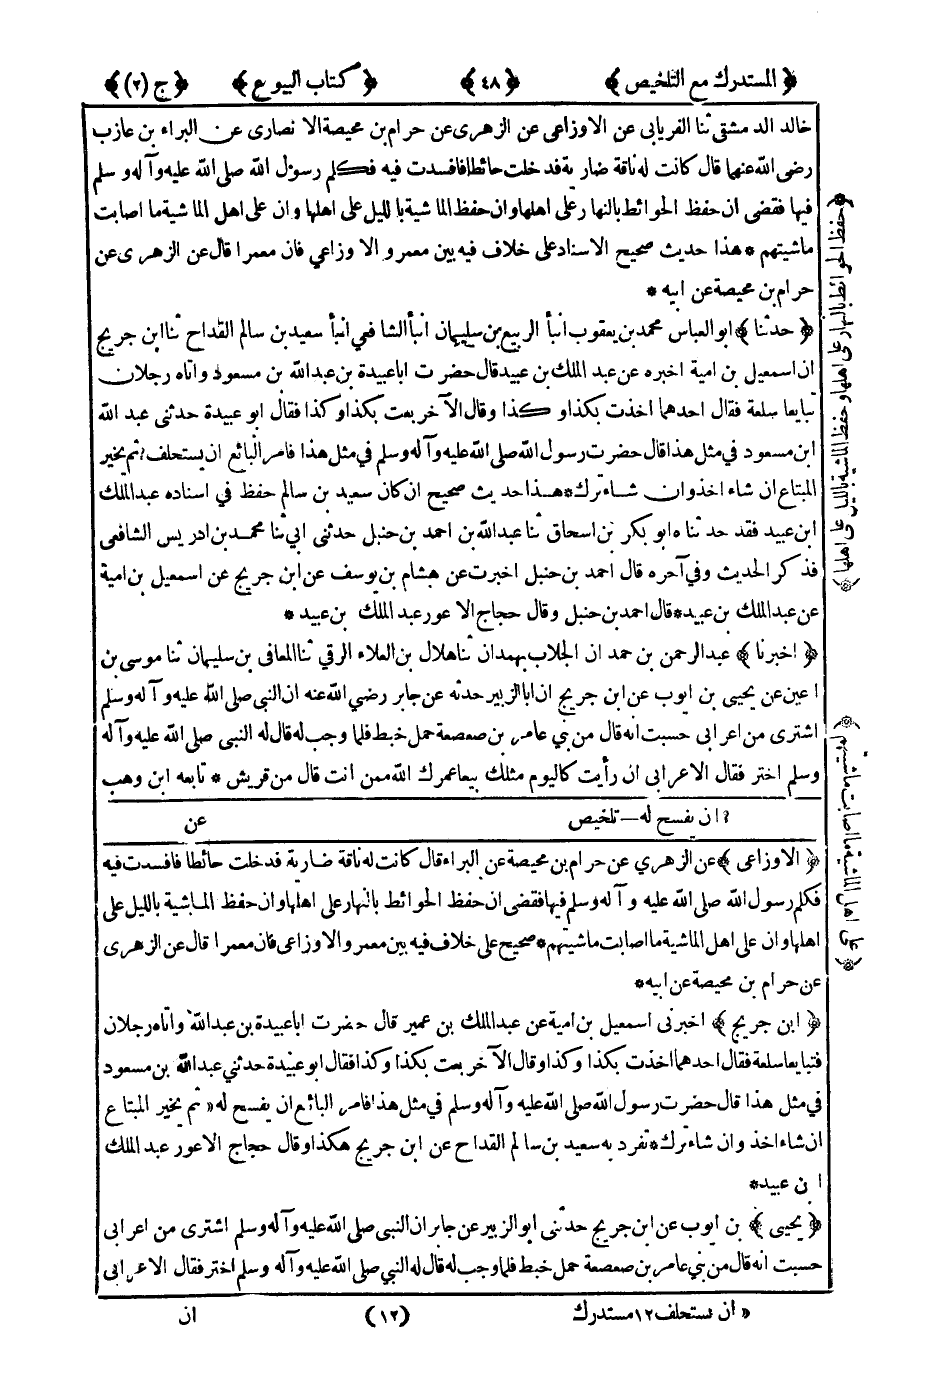 ﴿ المستدرك مع التلخيص ﴾ ﴿ ٤٨ ﴾ ﴿ كتاب البيوع ﴾ ﴿ ج (٢) ﴾
خالد الدمشقى ثنا الفريابى عن الاوزاعى عن الزهرى عن حرام بن محيصة الانصارى عن البراء بن عازب
رضى الله عنهما قال كانت له ناقة ضارية فدخلت حائطا فافسدت فيه فكلم رسول الله صلى الله عليه وآله وسلم
فيها فقضى ان حفظ الحوائط بالنهار على اهلها وان حفظ الماشية بالليل على اهلها وان على اهل الماشية ما اصابت
ماشيتهم * هذا حديث صحيح الاسناد على خلاف فيه بين معمر والاوزاعي فان معمرا قال عن الزهرى عن
حرام بن محيصة عن ابيه *
﴿ حدثنا ﴾ ابو العباس محمد بن يعقوب انبأ الربيع بن سليمان انبأ الشافعي انبأ سعيد بن سالم القداح ثنا ابن جريج
ان اسمعيل بن امية اخبره عن عبد الملك بن عبيد قال حضرت ابا عبيدة بن عبد الله بن مسعود واتاه رجلان
تبايعا سلعة فقال احدهما اخذت بكذا وكذا وقال الآخر بعت بكذا وكذا فقال ابو عبيدة حدثنى عبد الله
ابن مسعود في مثل هذا قال حضرت رسول الله صلى الله عليه وآله وسلم في مثل هذا فامر البائع ان يستحلف ؟ ثم يخير
المبتاع ان شاء اخذ وان شاء ترك * هذا حديث صحيح ان كان سعيد بن سالم حفظ في اسناده عبد الملك
ابن عبيد فقد حدثناه ابو بكر بن اسحاق ثنا عبد الله بن احمد بن حنبل حدثنى ابي ثنا محمد بن ادريس الشافعى
فذكر الحديث وفي آخره قال احمد بن حنبل اخبرت عن هشام بن يوسف عن ابن جريج عن اسمعيل بن امية
عن عبد الملك بن عبيد * قال احمد بن حنبل وقال حجاج الاعور عبد الملك بن عبيد *
﴿ اخبرنا ﴾ عبد الرحمن بن حمدان الجلاب بهمدان ثنا هلال بن العلاء الرقي ثنا المعافى بن سليمان ثنا موسى بن
اعين عن يحيى بن ايوب عن ابن جريج ان ابا الزبير حدثه عن جابر رضي الله عنه ان النبى صلى الله عليه وآله وسلم
اشترى من اعرابى حسبت انه قال من بني عامر بن صعصعة حمل خبط فلما وجب له قال له النبى صلى الله عليه وآله
وسلم اختر فقال الاعرابى ان رأيت كاليوم مثلك بيعا عمرك الله ممن انت قال من قريش * تابعه ابن وهب
؟ ان يفسخ له — تلخيص عن
﴿ الاوزاعى ﴾ عن الزهري عن حرام بن محيصة عن البراء قال كانت له ناقة ضارية فدخلت حائطا فافسدت فيه
فكلم رسول الله صلى الله عليه وآله وسلم فيها فقضى ان حفظ الحوائط بالنهار على اهلها وان حفظ الماشية بالليل على
اهلها وان على اهل الماشية ما اصابت ماشيتهم * صحيح على خلاف فيه بين معمر والاوزاعى فان معمرا قال عن الزهرى
عن حرام بن محيصة عن ابيه *
﴿ ابن جريج ﴾ اخبرنى اسمعيل بن امية عن عبد الملك بن عمير قال حضرت ابا عبيدة بن عبد الله واتاه رجلان
فتبايعا سلعة فقال احدهما اخذت بكذا وكذا وقال الآخر بعت بكذا وكذا فقال ابو عبيدة حدثني عبد الله بن مسعود
في مثل هذا قال حضرت رسول الله صلى الله عليه وآله وسلم في مثل هذا فامر البائع ان يفسح له « ثم يخير المبتاع
ان شاء اخذ وان شاء ترك * تفرد به سعيد بن سالم القداح عن ابن جريج هكذا وقال حجاج الاعور عبد الملك
ابن عبيد *
﴿ يحيى ﴾ بن ايوب عن ابن جريج حدثنى ابو الزبير عن جابر ان النبى صلى الله عليه وآله وسلم اشترى من اعرابى
حسبت انه قال من بني عامر بن صعصعة حمل خبط فلما وجب له قال له النبي صلى الله عليه وآله وسلم اختر فقال الاعرابى
« ان يستحلف ١٢ مستدرك (١٢) ان
﴿ حفظ الحوائط بالنهار على اهلها وحفظ الماشية بالليل على اهلها ﴾
﴿ على اهل الماشية ما اصابت ماشيته ﴾